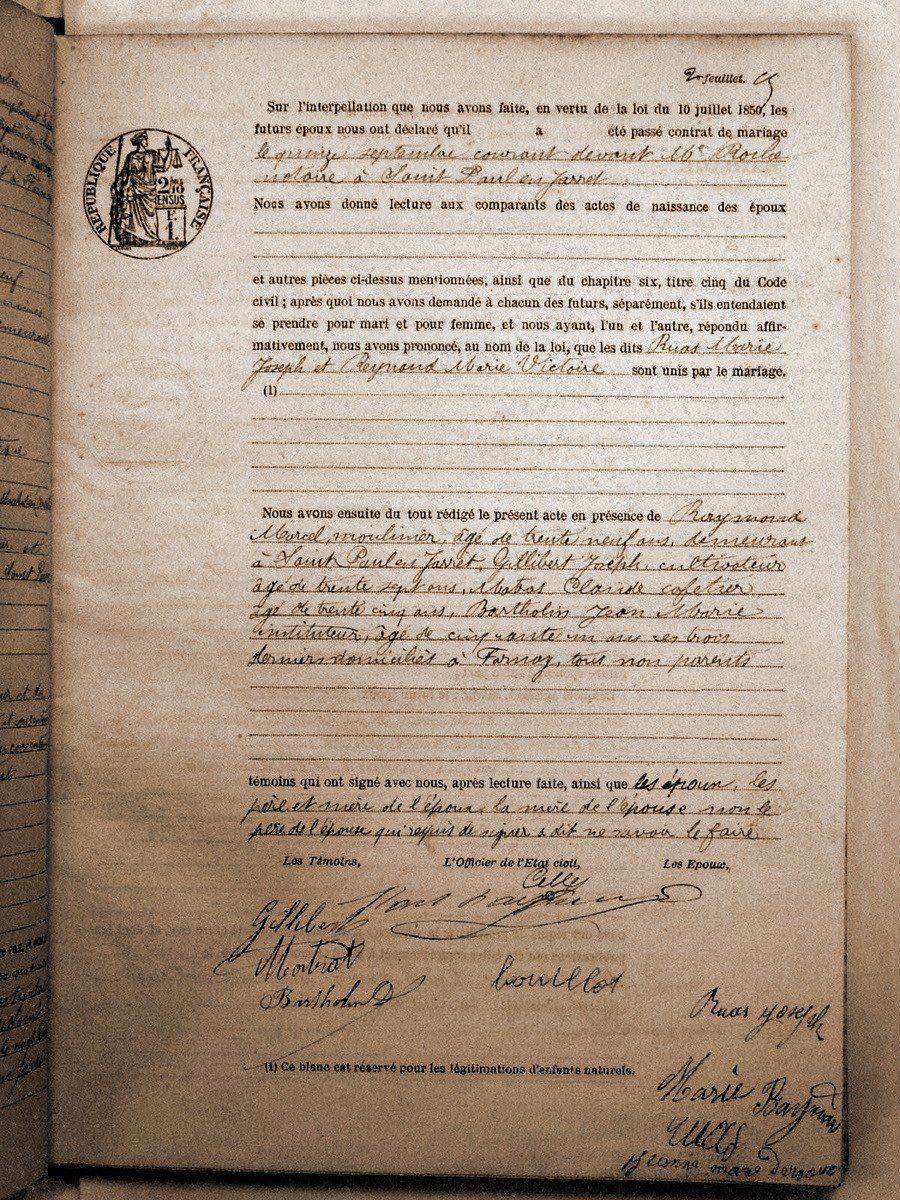 2e feuillet.
Sur l'interpellation que nous avons faite, en vertu de la loi du 10 juillet 1850, les
futurs époux nous ont déclaré qu'il a été passé contrat de mariage
le quinze septembre courant devant Me
notaire à Saint Paul en Jarret
RÉPUBLIQUE FRANÇAISE
Nous avons donné lecture aux comparants des actes de naissance des époux
et autres pièces ci-dessus mentionnées, ainsi que du chapitre six, titre cinq du Code
civil ; après quoi nous avons demandé à chacun des futurs, séparément, s'ils entendaient
se prendre pour mari et pour femme, et nous ayant, l'un et l'autre, répondu affir-
mativement, nous avons prononcé, au nom de la loi, que les dits Ruas Marie
Joseph et Reynaud Marie Victoire sont unis par le mariage.
(1)
Nous avons ensuite du tout rédigé le présent acte en présence de Raymond
Marcel, moulinier, âgé de trente neuf ans, demeurant
à Saint Paul en Jarret, Gillibert Joseph, cultivateur
âgé de trente sept ans, Claude cafetier
âgé de trente cinq ans, Bartholin Jean Marie
instituteur, âgé de cinquante un ans ces trois
derniers domiciliés à Farnay, tous non parents
témoins qui ont signé avec nous, après lecture faite, ainsi que les époux, les
père et mère de l'époux, la mère de l'épouse non le
père de l'épouse qui requis de signer a dit ne savoir le faire
Les Témoins, L'Officier de l'Etat civil, Les Epoux,
Gillibert
Bartholin
Ruas Joseph
(1) Ce blanc est réservé pour les légitimations d'enfants naturels.
Marie
ruas